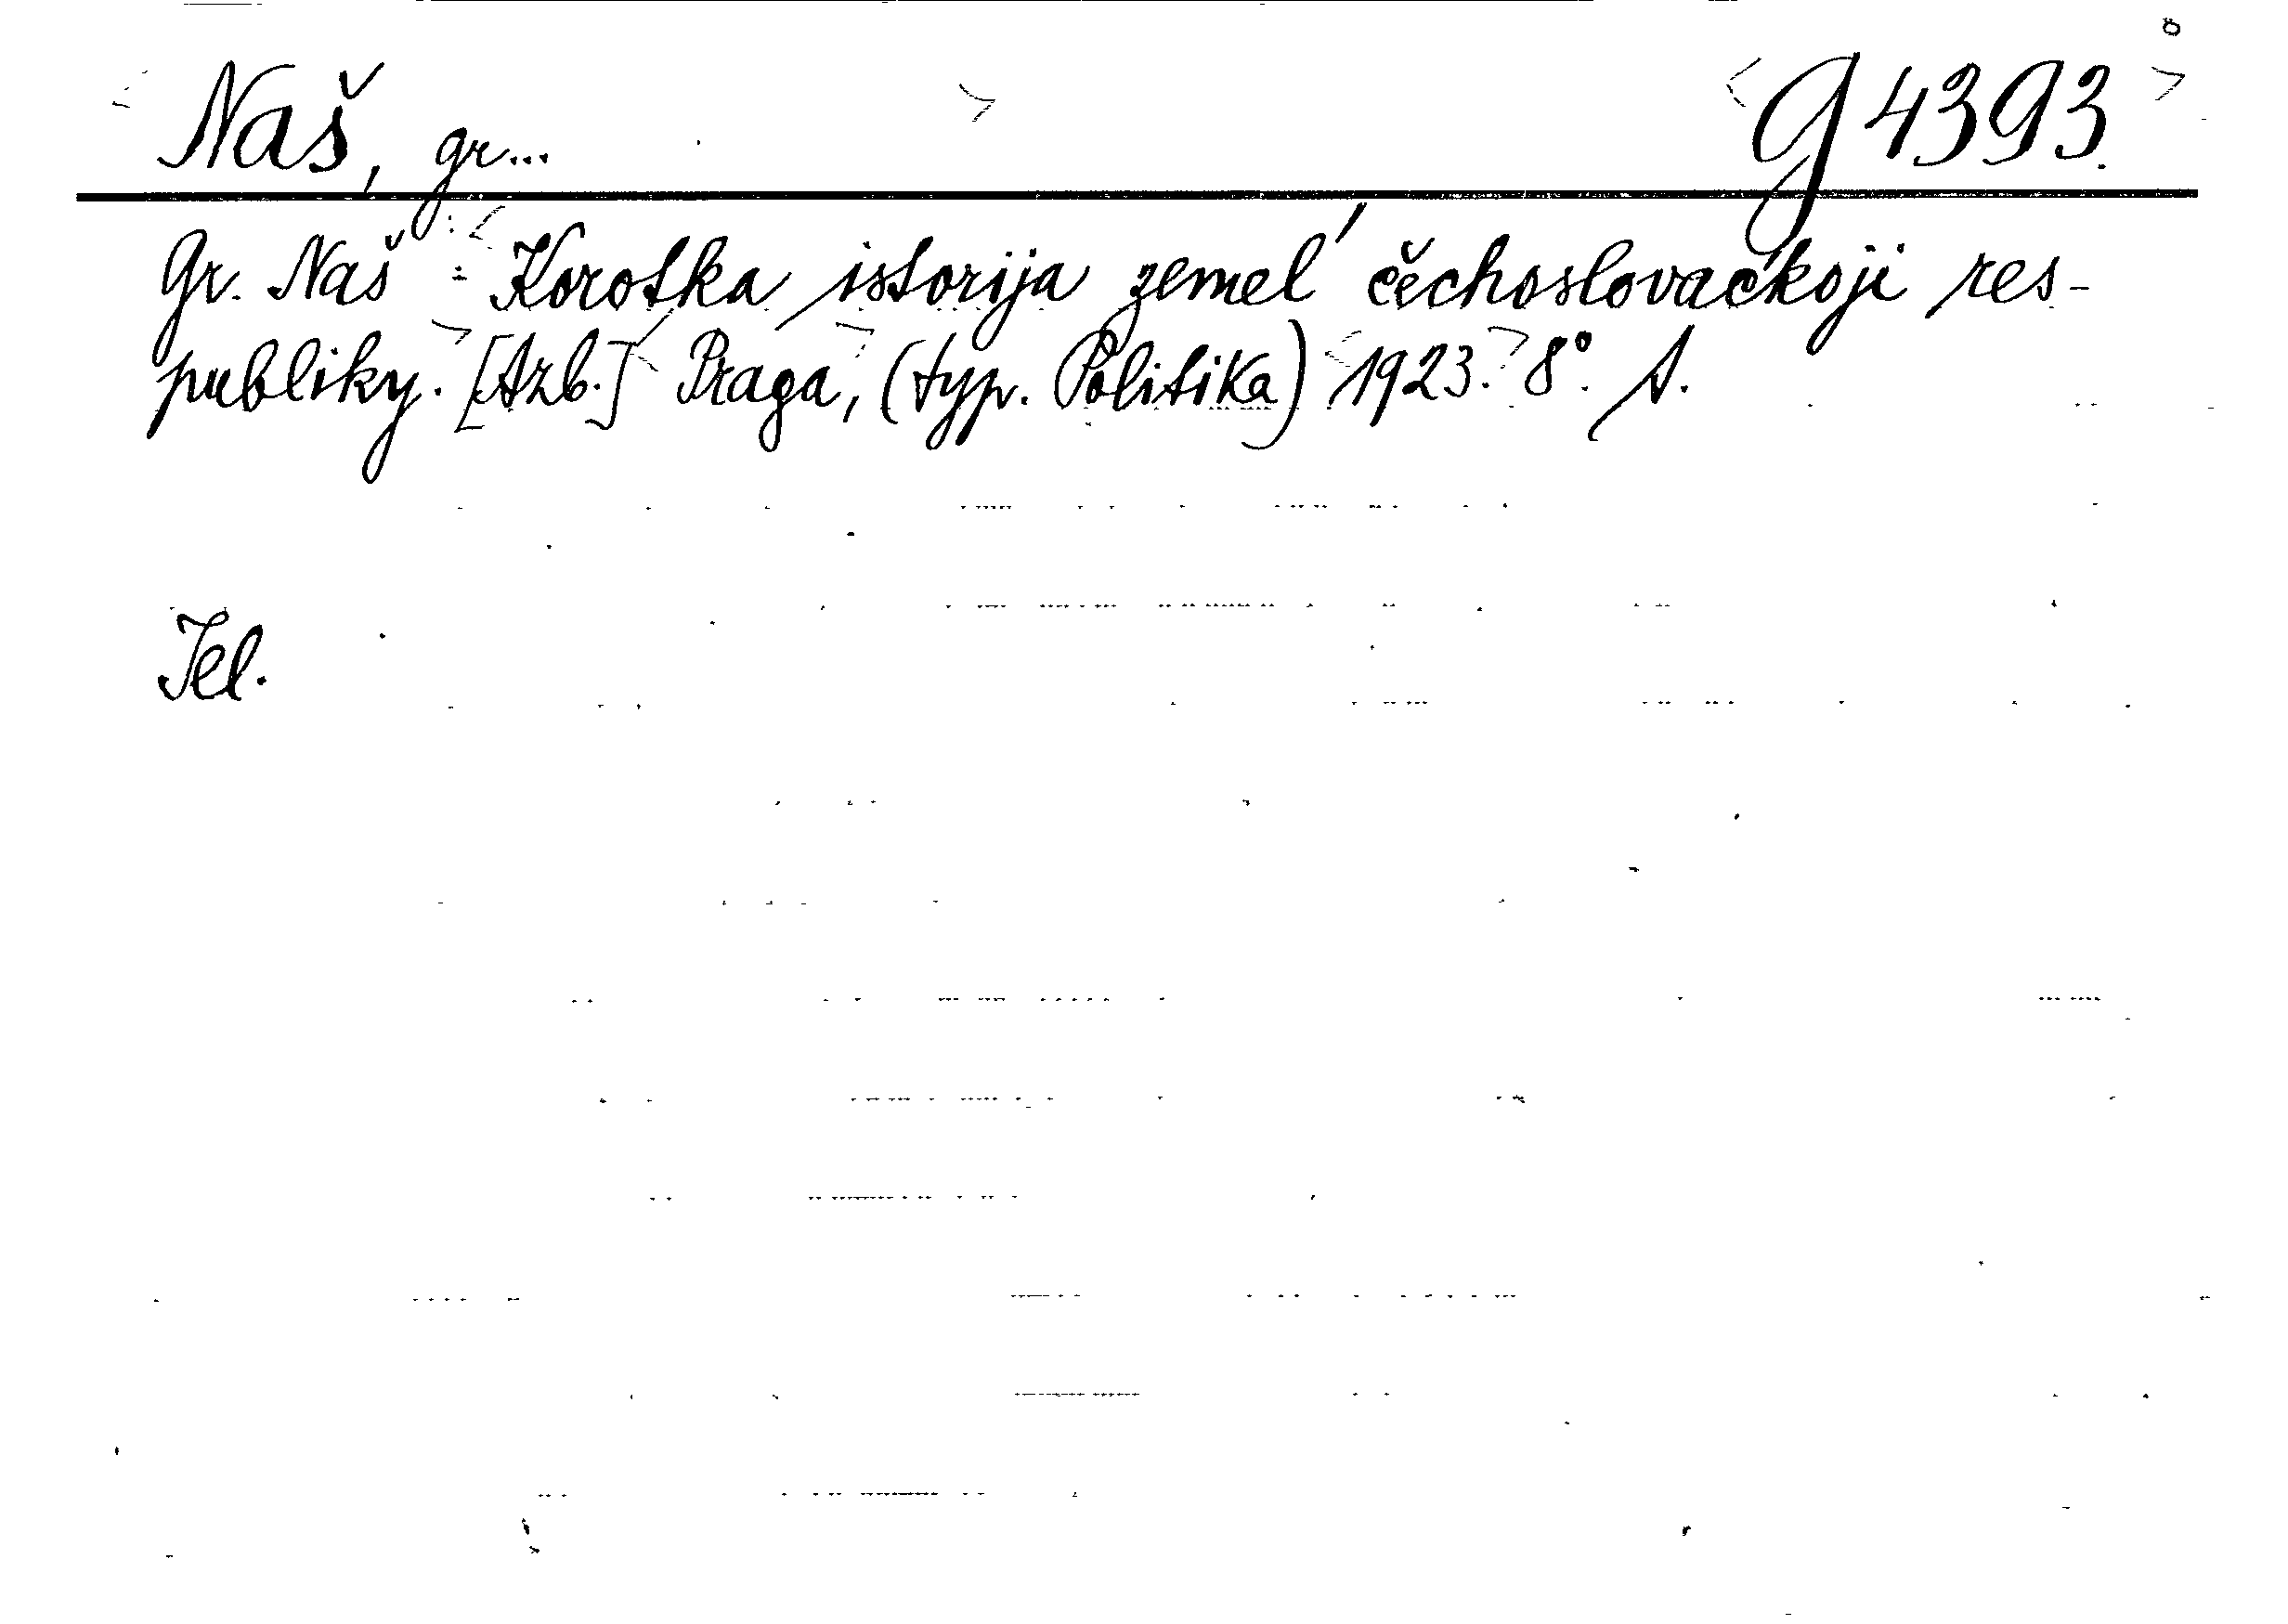 Naš, gr... g 4393.
Gr. Naš : Korotka istorija zemel' čechoslovaćkoji res-
publiky. [Azb.] Praga, (typ. Politika) 1923. 8°. A.
Jel.